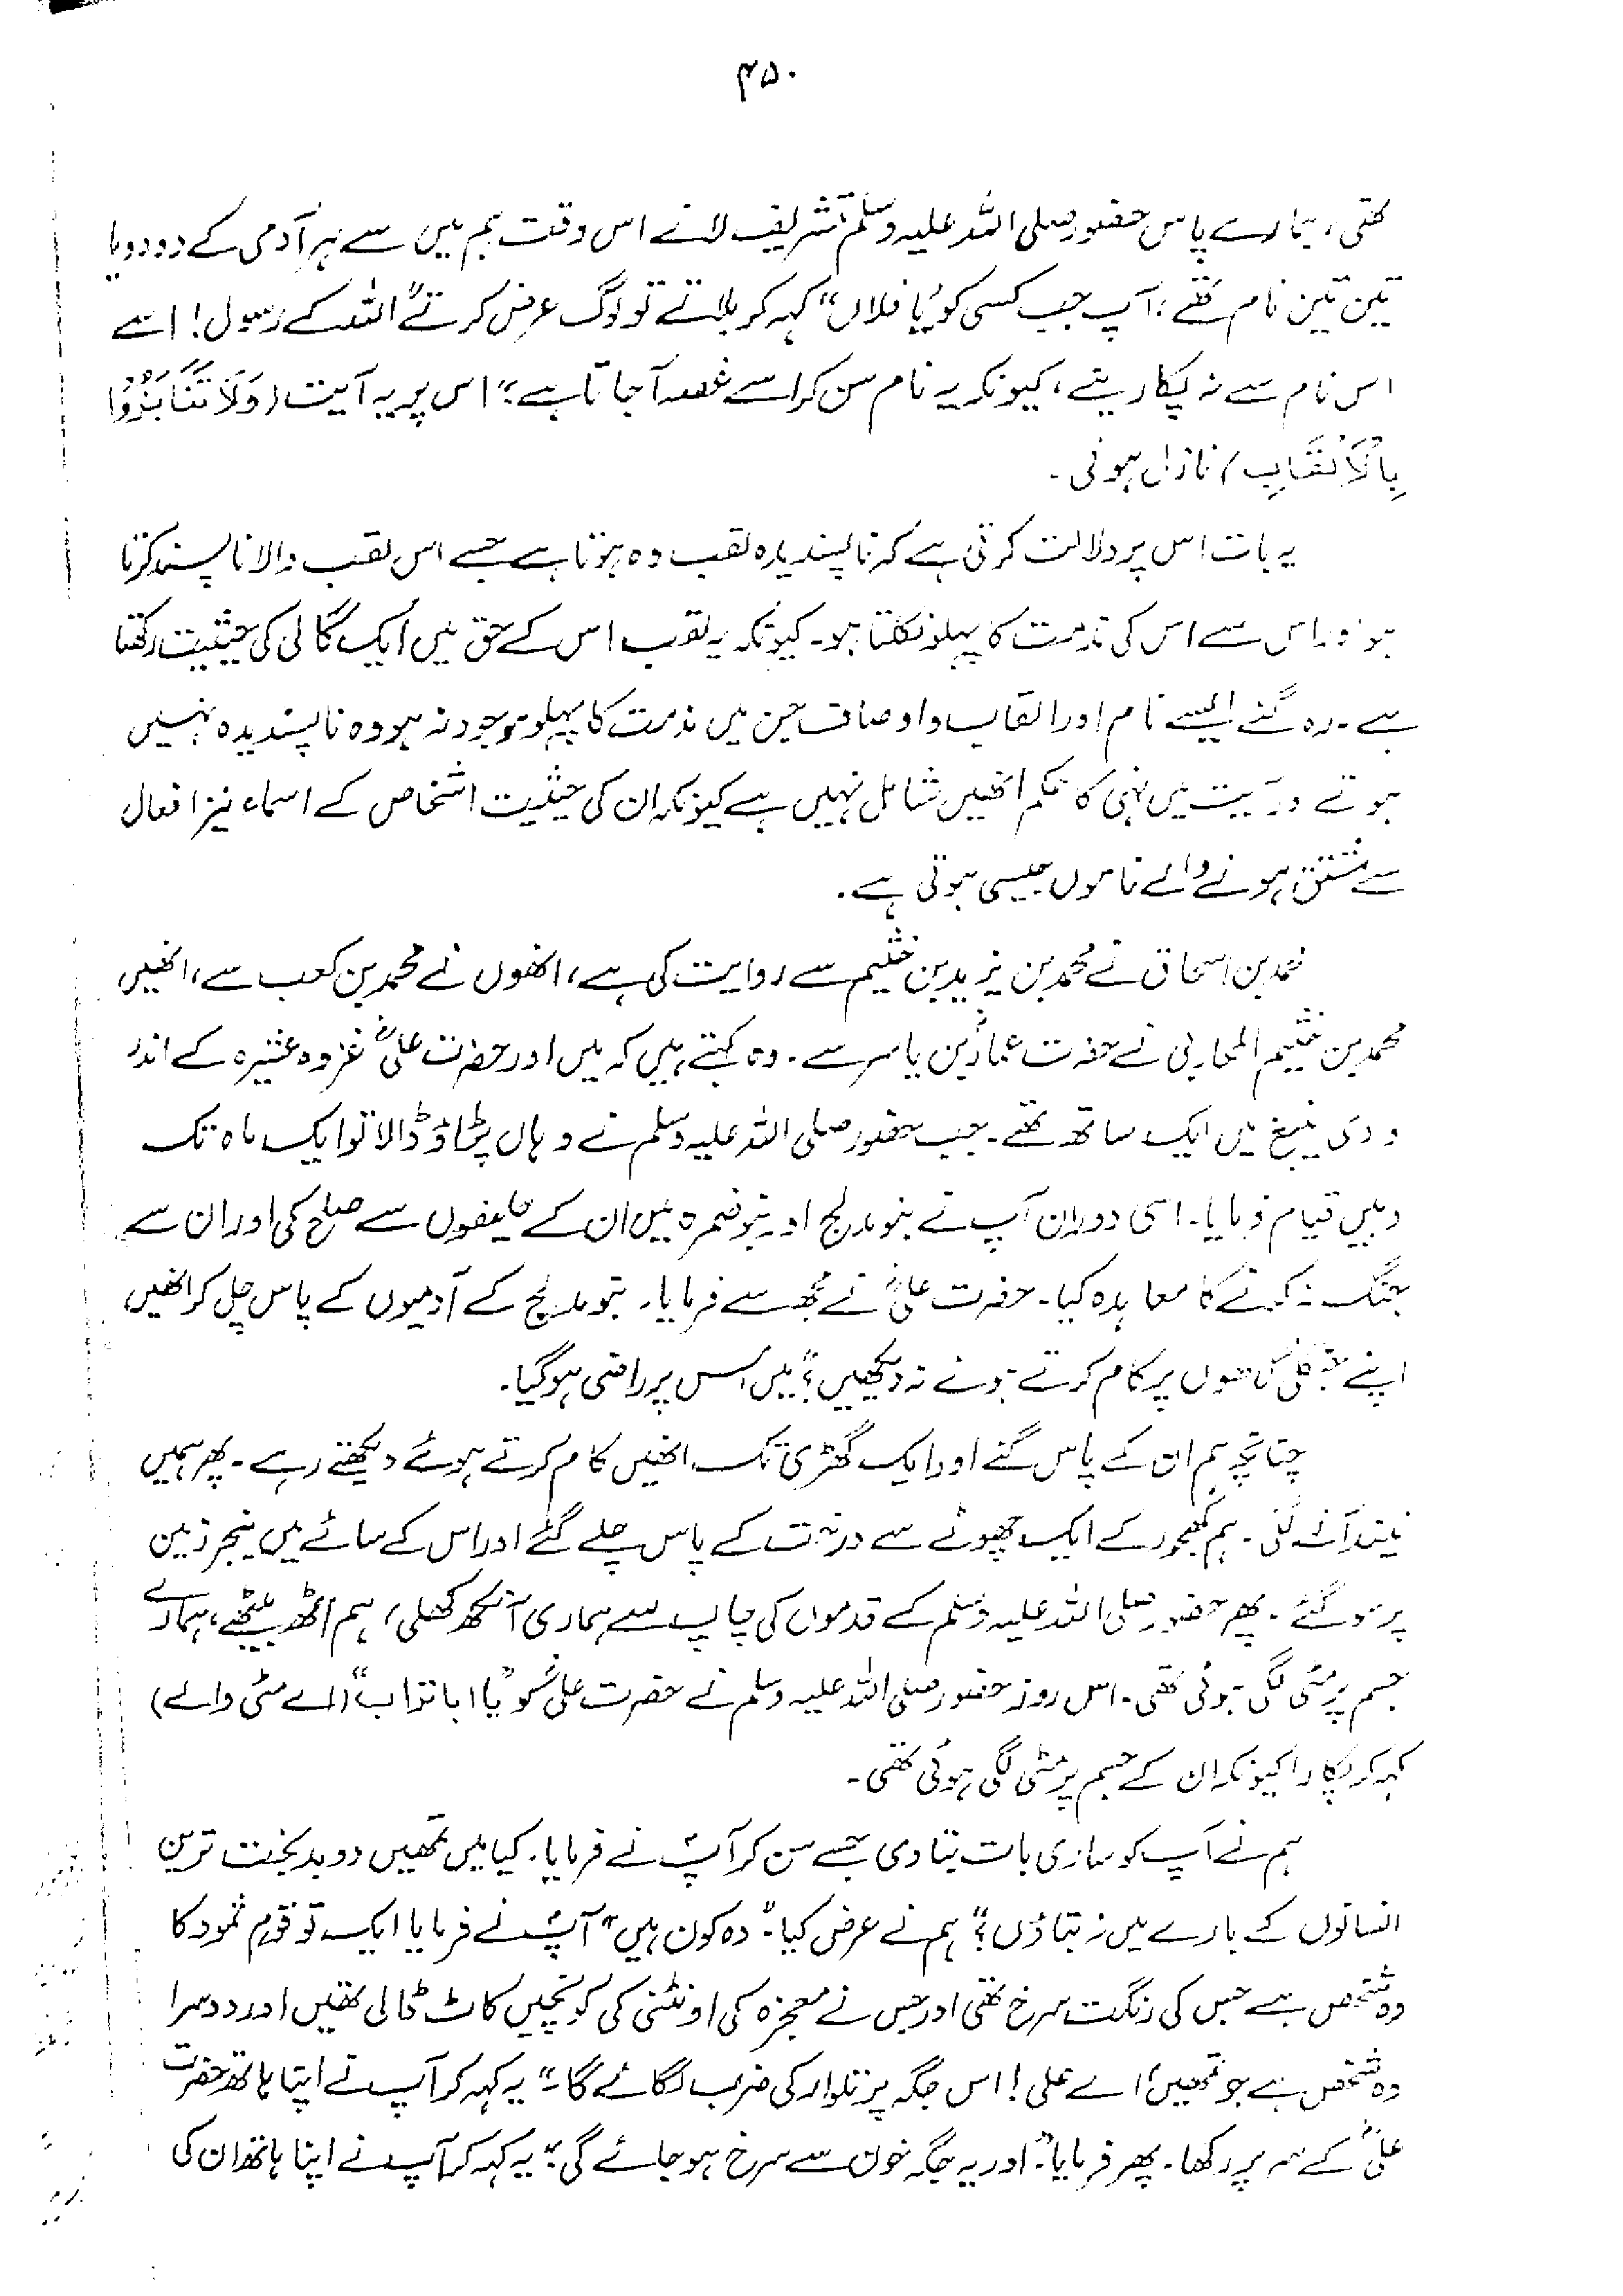 ۴۵۰
تھی، ہمارے پاس حضور صلی اللہ علیہ وسلم تشریف لائے اس وقت ہم میں سے ہر آدمی کے دو دو یا
تین تین نام تھے، آپ جب کسی کو "یا فلاں" کہہ کر بلاتے تو لوگ عرض کرتے "اللہ کے رسول! اسے
اس نام سے نہ پکاریئے، کیونکہ یہ نام سن کر اسے غصہ آجاتا ہے" اس پر یہ آیت (وَلَا تَنَابَزُوْا
بِالْاَلْقَابِ) نازل ہوئی۔
یہ بات اس پر دلالت کرتی ہے کہ ناپسندیدہ لقب وہ ہوتا ہے جسے اس لقب والا ناپسند کرتا
ہو اور اس سے اس کی مذمت کا پہلو نکلتا ہو۔ کیونکہ یہ لقب اس کے حق میں ایک گالی کی حیثیت رکھتا
ہے۔ رہ گئے ایسے نام اور القاب و اوصاف جن میں مذمت کا پہلو موجود نہ ہو وہ ناپسندیدہ نہیں
ہوتے اور آیت میں نہی کا حکم انھیں شامل نہیں ہے کیونکہ ان کی حیثیت اشخاص کے اسماء نیز افعال
سے مشتق ہونے والے ناموں جیسی ہوتی ہے۔
محمد بن اسحاق نے محمد بن یزید بن خثیم سے روایت کی ہے، انھوں نے محمد بن کعب سے، انھیں
محمد بن خثیم المحاربی نے حضرت عمارؓ بن یاسر سے۔ وہ کہتے ہیں کہ میں اور حضرت علیؓ غزوہ عشیرہ کے اندر
وادی ینبع میں ایک ساتھ تھے۔ جب حضور صلی اللہ علیہ وسلم نے وہاں پڑاؤ ڈالا تو ایک ماہ تک
وہیں قیام فرمایا۔ اسی دوران آپ نے بنو مدلج اور بنو ضمرہ میں ان کے حلیفوں سے صلح کی اور ان سے
جنگ نہ کرنے کا معاہدہ کیا۔ حضرت علیؓ نے مجھ سے فرمایا۔ بنو مدلج کے آدمیوں کے پاس چل کر انھیں
اپنے پر کام کرتے ہوئے نہ دیکھیں؟" میں اس پر راضی ہوگیا۔
چنانچہ ہم ان کے پاس گئے اور ایک گھڑی تک انھیں کام کرتے ہوئے دیکھتے رہے۔ پھر ہمیں
نیند آنے لگی۔ ہم کھجور کے ایک چھوٹے سے درخت کے پاس چلے گئے اور اس کے سائے میں بنجر زمین
پر سو گئے۔ پھر حضور صلی اللہ علیہ وسلم کے قدموں کی چاپ سے ہماری آنکھ کھلی، ہم اٹھ بیٹھے، ہمارے
جسم پر مٹی لگی ہوئی تھی۔ اس روز حضور صلی اللہ علیہ وسلم نے حضرت علیؓ کو "یا ابا تراب" (اے مٹی والے)
کہہ کر پکارا کیونکہ ان کے جسم پر مٹی لگی ہوئی تھی۔
ہم نے آپ کو ساری بات بتا دی جسے سن کر آپؐ نے فرمایا۔ کیا میں تمھیں دو بدبخت ترین
انسانوں کے بارے میں نہ بتاؤں؟" ہم نے عرض کیا۔" وہ کون ہیں" آپؐ نے فرمایا ایک تو قوم ثمود کا
وہ شخص ہے جس کی رنگت سرخ تھی اور جس نے معجزہ کی اونٹنی کی کونچیں کاٹ ڈالی تھیں اور دوسرا
وہ شخص ہے جو تمھیں، اے علی! اس جگہ پر تلوار کی ضرب لگائے گا۔" یہ کہہ کر آپ نے اپنا ہاتھ حضرت
علیؓ کے سر پر رکھا۔ پھر فرمایا "اور یہ جگہ خون سے سرخ ہو جائے گی" یہ کہہ کر آپ نے اپنا ہاتھ ان کی